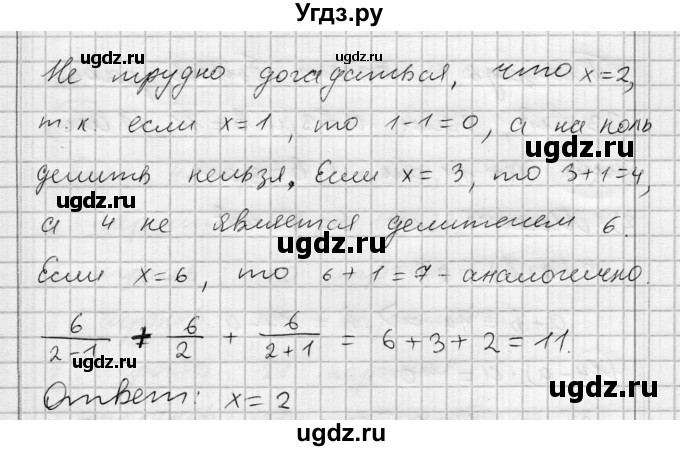 Угдз.ру
Не трудно догадаться, что x=2,
т.к. если x=1, то 1-1=0, а на ноль
делить нельзя. Если x=3, то 3+1=4,
а 4 не является делителем 6.
Если x=6, то 6+1=7 - аналогично.
6/(2-1) + 6/2 + 6/(2+1) = 6+3+2=11.
Ответ: x=2
ugdz.ru
ugdz.ru
ugdz.ru
ugdz.ru
ugdz.ru
ugdz.ru
ugdz.ru
ugdz.ru
ugdz.ru
ugdz.ru
ugdz.ru